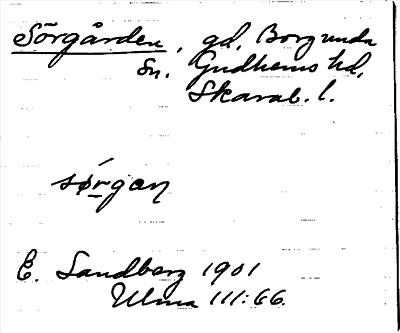 Sörgården, gd, Borgunda
sn. Gudhems hd,
Skarab. l.
sørgaṇ
E. Sandberg 1901
Ulma 111:66.